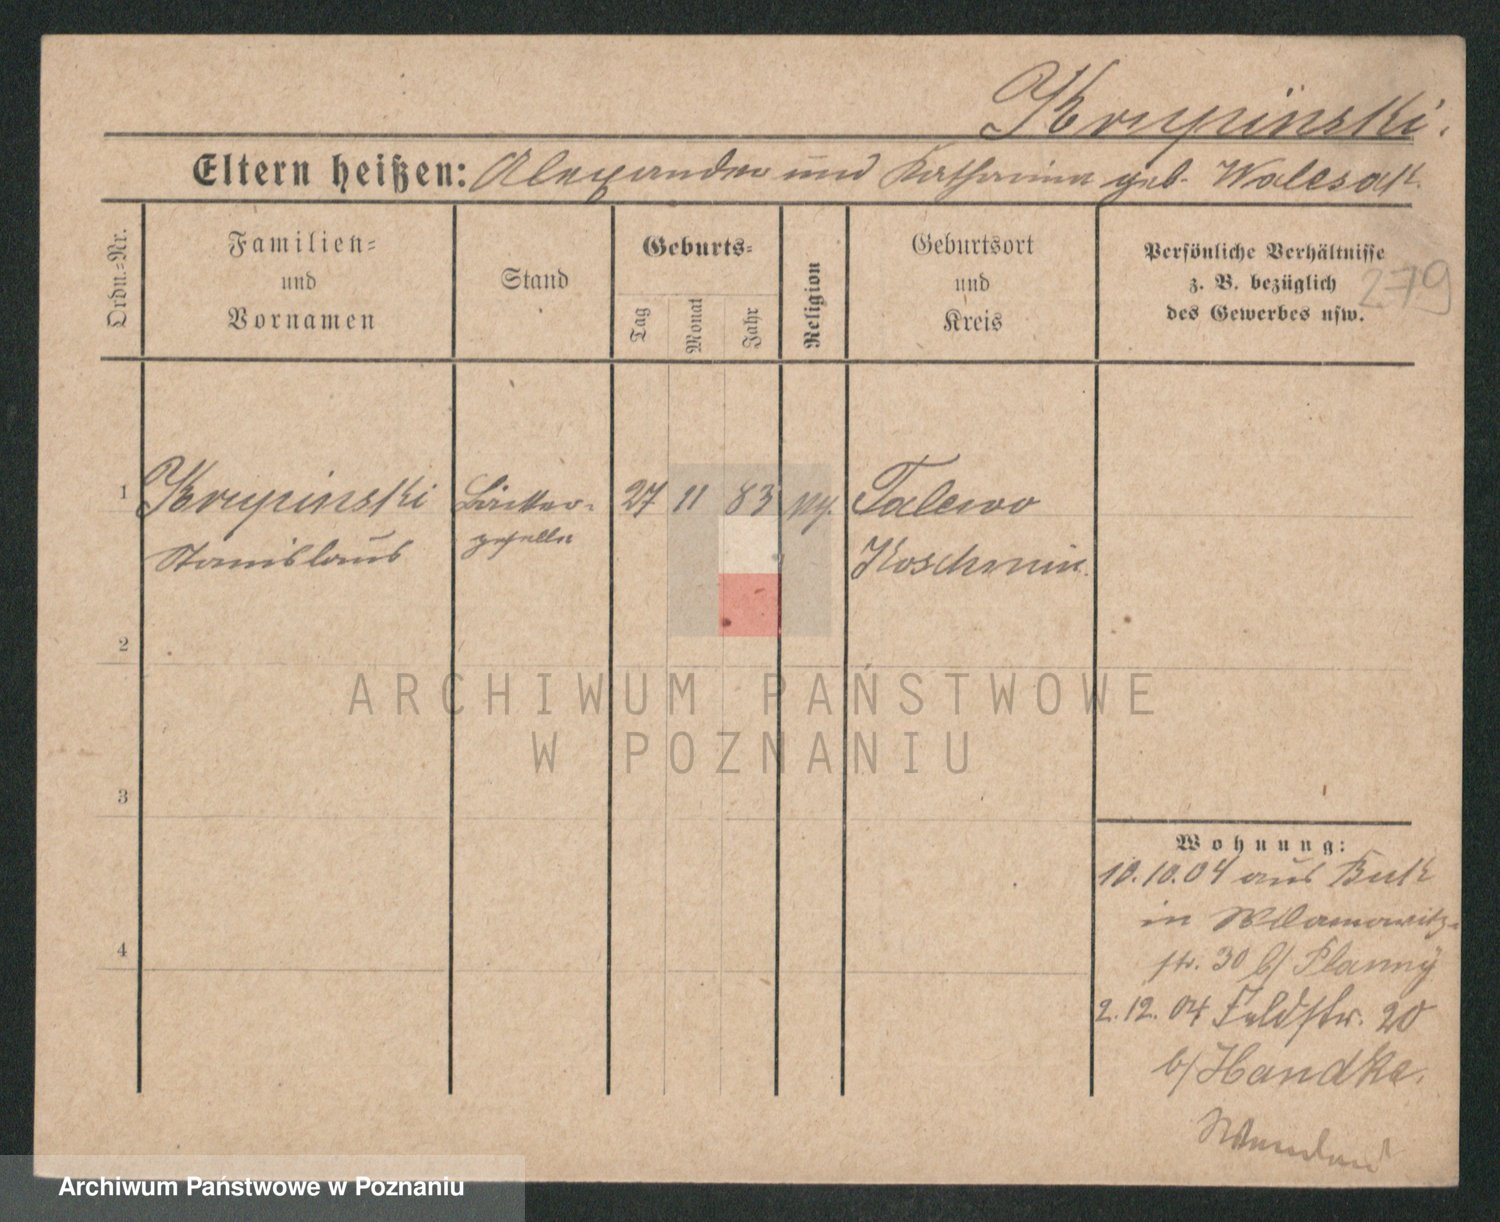 Krupinski.
Eltern heißen: Alexander und Katharina geb. Walczak.
Ordn.=Nr.
Familien=
und
Vornamen
Stand
Geburts=
Tag
Monat
Jahr
Religion
Geburtsort
und
Kreis
Persönliche Verhältnisse
z. B. bezüglich
des Gewerbes usw.
279
1 Krupinski Bäcker- 27 11 83 Talewo
Stanislaus geselle Koschmin.
2
3
4
Wohnung:
10.10.04 aus Buk
in
str. 30 b/
2.12.04 Feldstr. 20
b/ Handke.
ARCHIWUM PAŃSTWOWE
W POZNANIU
Archiwum Państwowe w Poznaniu